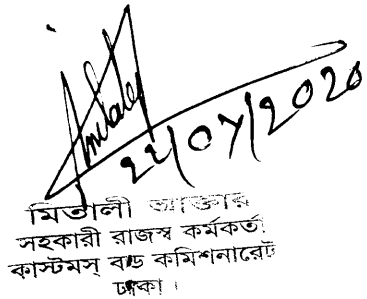 মিতালী আক্তার
সহকারী রাজস্ব কর্মকর্তা
কাস্টমস্ বন্ড কমিশনারেট
ঢাকা।